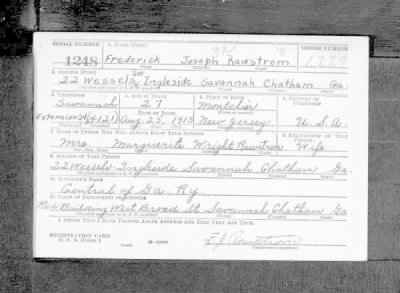 SERIAL NUMBER 1. NAME (Print) ORDER NUMBER
1248 Frederick Joseph Rawstrom 1779
(First) (Middle) (Last)
2. ADDRESS (Print)
22 Wessels Ave. Ingleside Savannah Chatham Ga.
3. TELEPHONE 4. AGE IN YEARS 5. PLACE OF BIRTH 6. COUNTRY OF CITIZENSHIP
Savannah 27 Montclair
DATE OF BIRTH
Extension 24 (4121) Aug. 25, 1913 New Jersey U.S.A.
7. NAME OF PERSON WHO WILL ALWAYS KNOW YOUR ADDRESS 8. RELATIONSHIP OF THAT PERSON
Mrs. Marguerite Wright Rawstrom Wife
9. ADDRESS OF THAT PERSON
22 Wessels - Ingleside Savannah Chatham Ga.
10. EMPLOYER'S NAME
Central of Ga. Ry.
11. PLACE OF EMPLOYMENT OR BUSINESS
Red Building West Broad St. Savannah Chatham Ga
I AFFIRM THAT I HAVE VERIFIED ABOVE ANSWERS AND THAT THEY ARE TRUE.
REGISTRATION CARD
D. S. S. FORM 1
F J Rawstrom
(Registrant's signature)